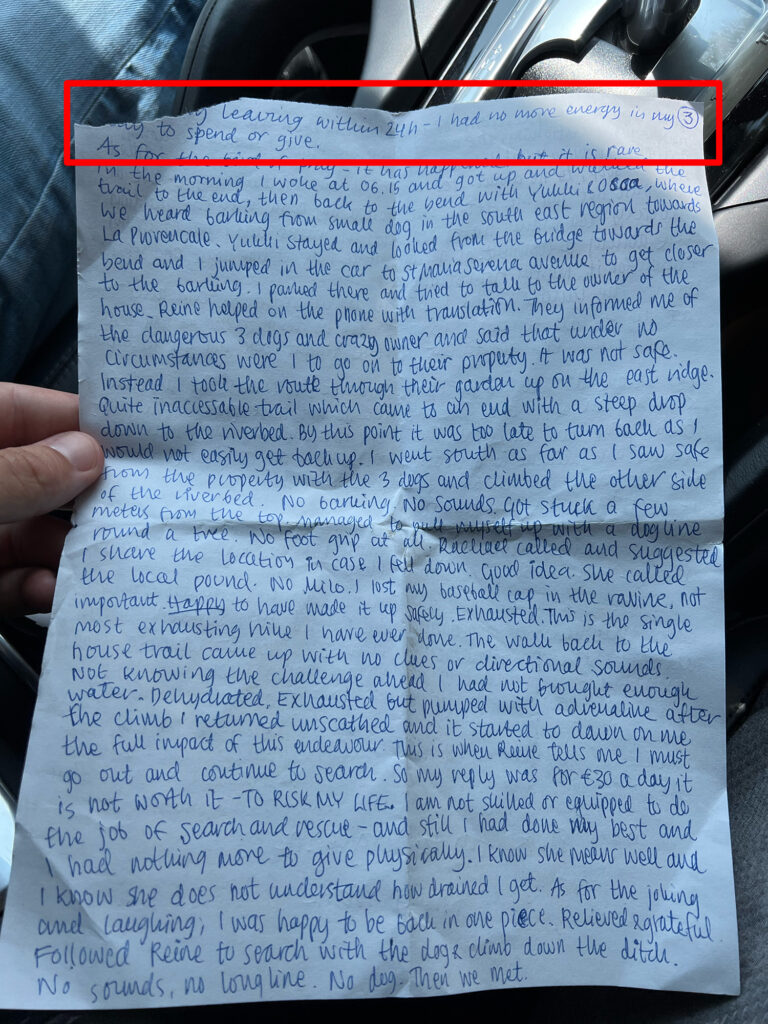 leaving within 24h - I had no more energy in my ③
to spend or give.
As for the bird of pray - it has happened but it is rare.
In the morning I woke at 06.15 and got up and walked the
trail to the end, then back to the bend with Yukki & where
we heard barking from small dog in the south east region towards
La Provencale. Yukki stayed and looked from the bridge towards the
bend and I jumped in the car to St Maria Serena avenue to get closer
to the barking. I parked there and tried to talk to the owner of the
house. Reine helped on the phone with translation. They informed me of
the dangerous 3 dogs and crazy owner and said that under no
circumstances were I to go on to their property. It was not safe.
Instead I took the route through their garden up on the east ridge.
Quite inaccessable trail which came to an end with a steep drop
down to the riverbed. By this point it was too late to turn back as I
would not easily get back up. I went south as far as I saw safe
from the property with the 3 dogs and climbed the other side
of the riverbed. No barking. No sounds. Got stuck a few
meters from the top. Managed to pull myself up with a dogline
round a tree. No foot grip at all. Rachael called and suggested
I share the location in case I fell down. Good idea. She called
the local pound. No Milo. I lost my baseball cap in the ravine, not
important. Happy to have made it up safely. Exhausted. This is the single
most exhausting hike I have ever done. The walk back to the
house trail came up with no clues or directional sounds.
Not knowing the challenge ahead I had not brought enough
water. Dehydrated, Exhausted but pumped with adrenaline after
the climb I returned unscathed and it started to dawn on me
the full impact of this endeavour. This is when Reine tells me I must
go out and continue to search. So my reply was for €30 a day it
is not worth it - TO RISK MY LIFE. I am not skilled or equipped to do
the job of search and rescue - and still I had done my best and
I had nothing more to give physically. I know she means well and
I know she does not understand how drained I get. As for the joking
and laughing, I was happy to be back in one piece. Relieved & grateful
Followed Reine to search with the dog & climb down the ditch.
No sounds, no longline. No dog. Then we met.